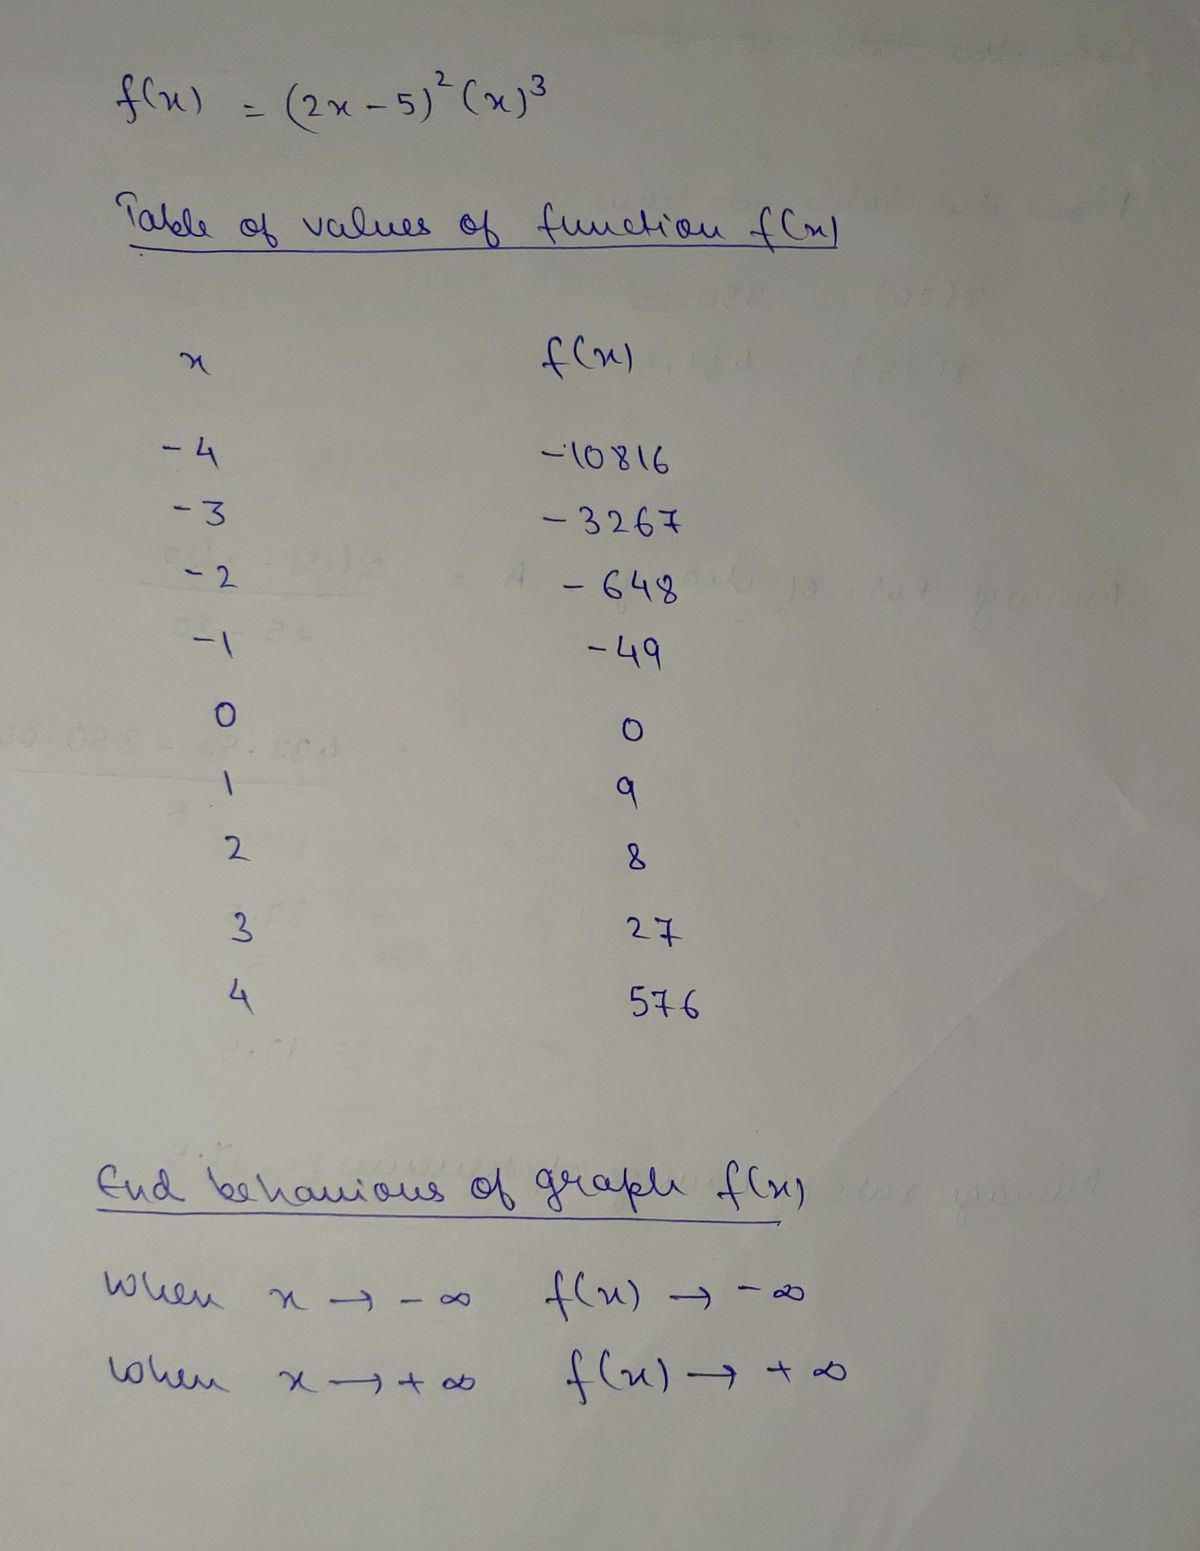 f(x) = (2x-5)²(x)³
Table of values of function f(x)
x f(x)
-4 -10816
-3 -3267
-2 -648
-1 -49
0 0
1 9
2 8
3 27
4 576
End behaviours of graph f(x)
When x → -∞ f(x) → -∞
When x → +∞ f(x) → +∞